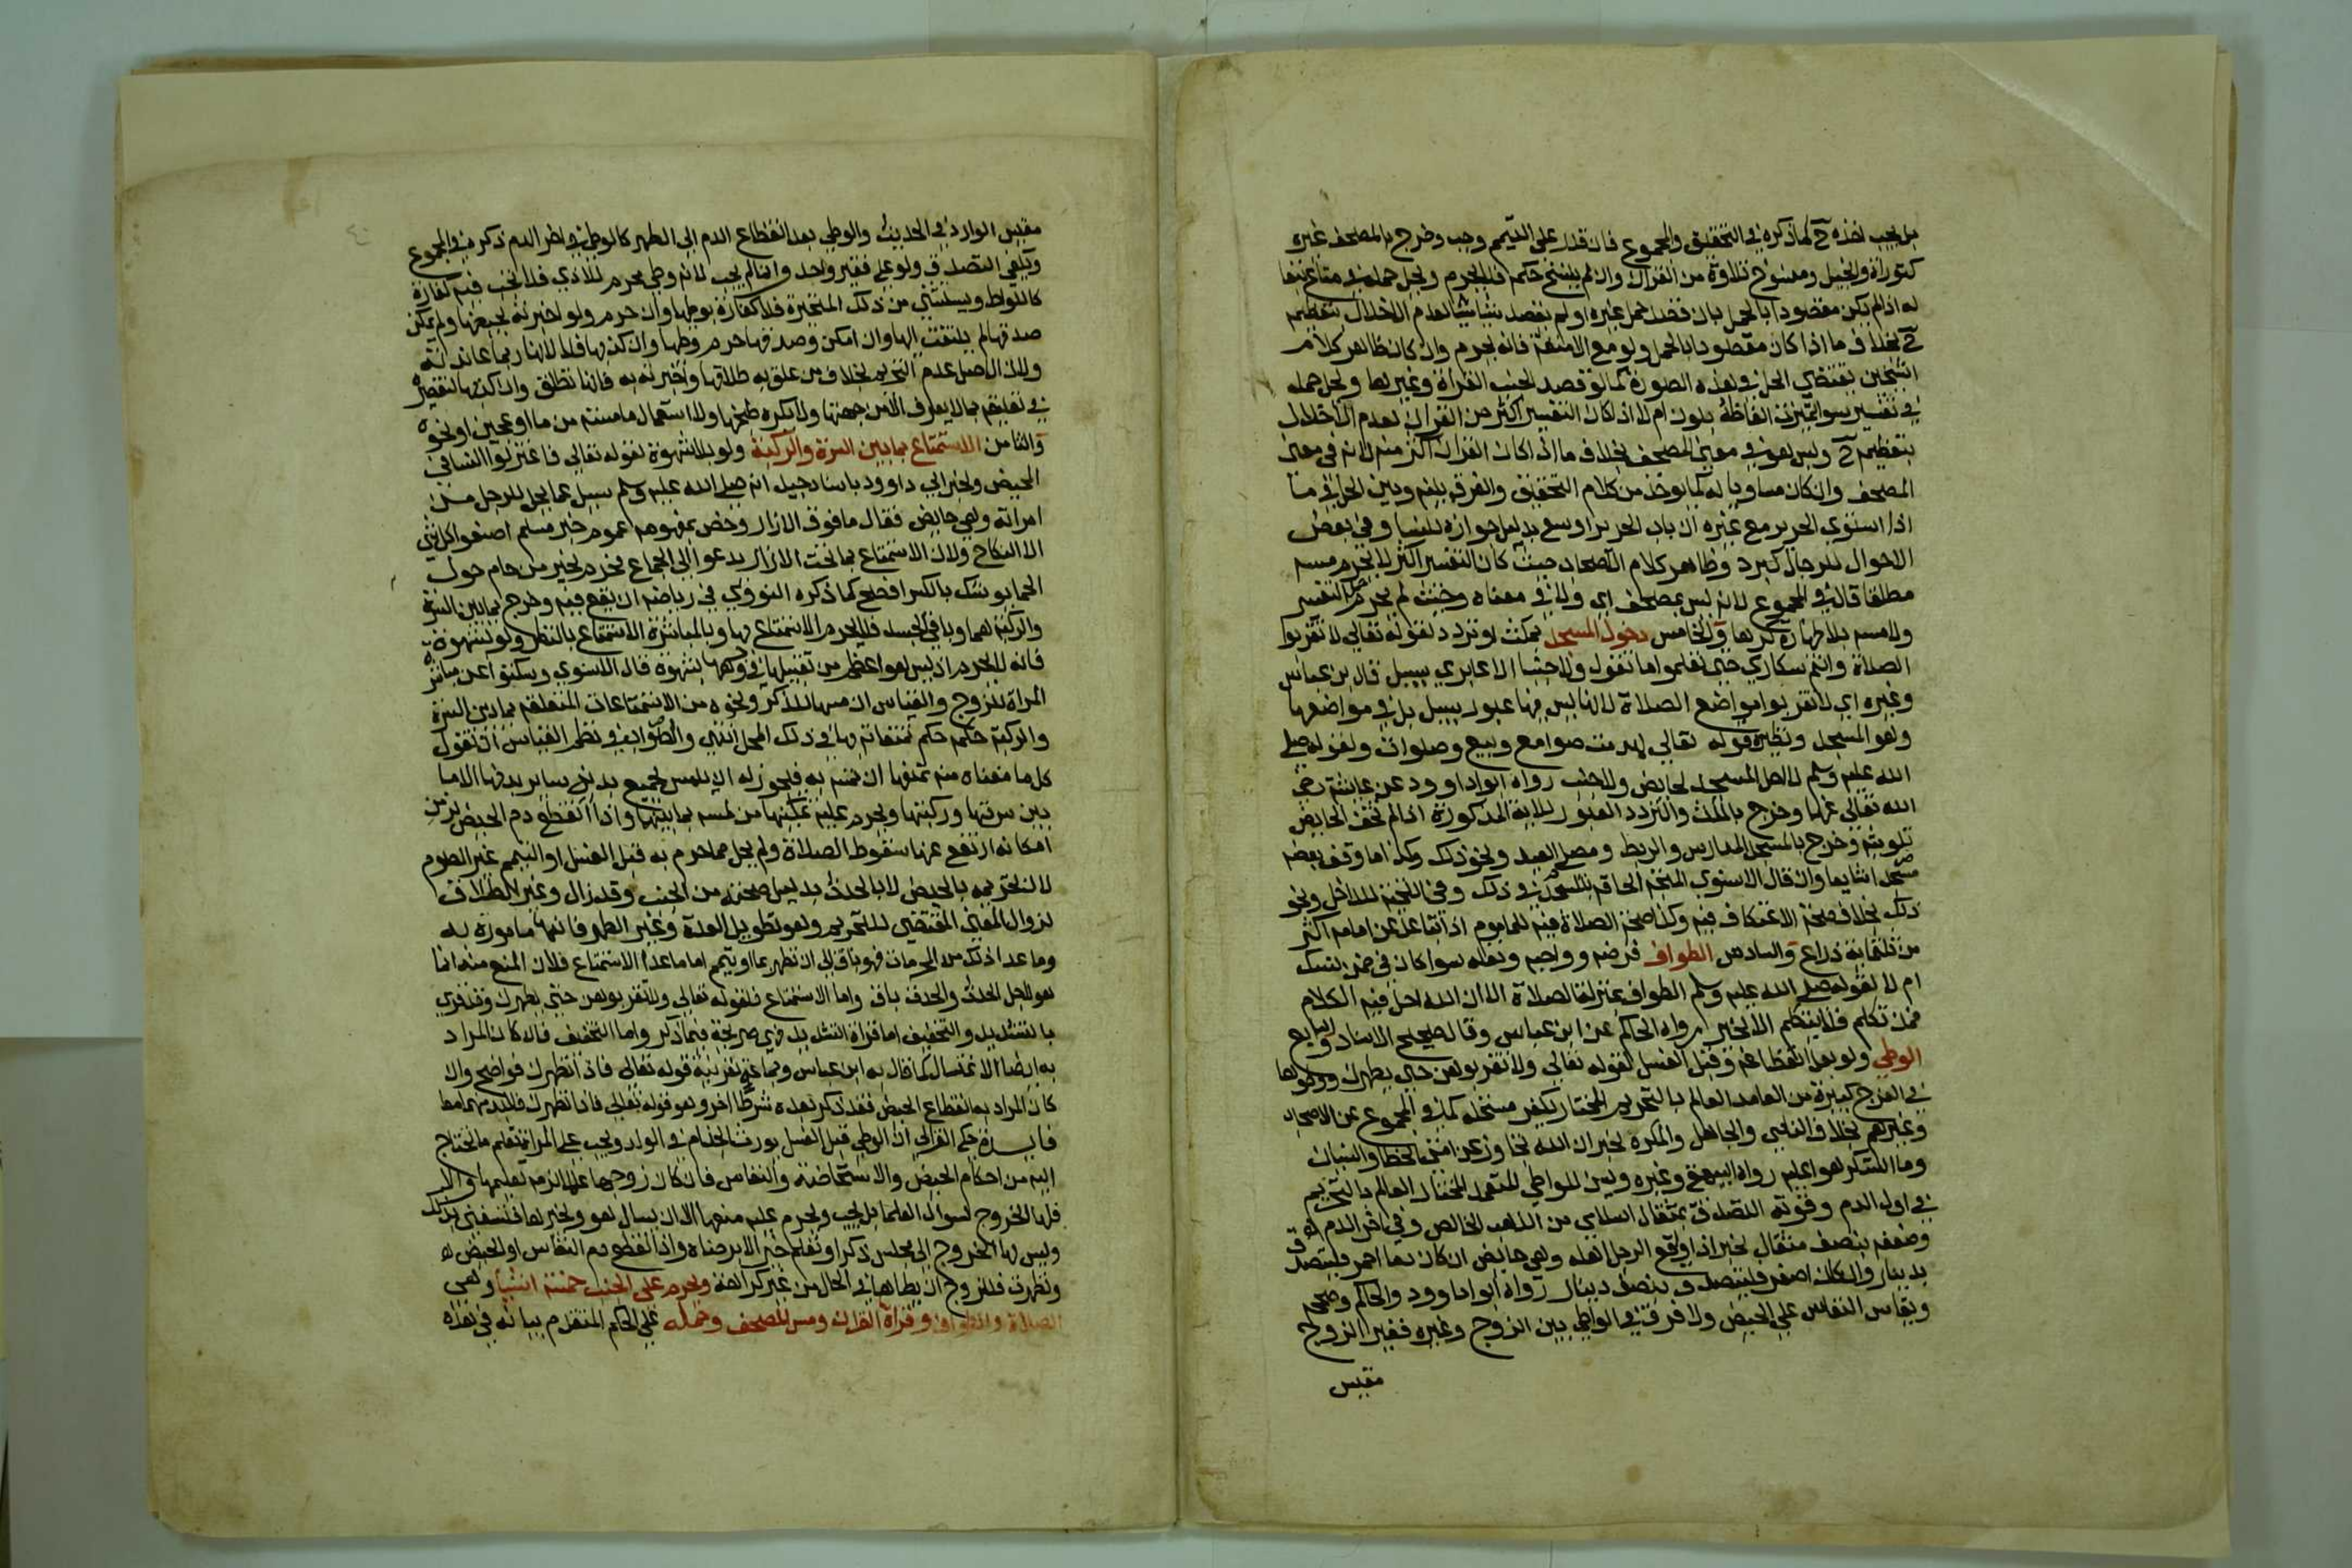 بل يجب اخذه ح كما ذكره في التحقيق والمجموع فان قدر على التيمم وجب وخرج بالمصحف غيره
كتوراة وانجيل ومنسوخ تلاوة من القران وان لم ينسخ حكمه فلا يحرم ويحل حمله في متاع تبعا
له اذا لم يكن مقصودا بالحمل بان قصد حمل غيره او لم يقصد شيا لعدم الاخلال بتعظيمه
ح بخلاف ما اذا كان مقصودا بالحمل ولو مع الامتعة فانه يحرم وان كان ظاهر كلام
الشيخين يقتضي الحل في هذه الصورة كما لو قصد الجنب القراة وغيرها ويحل حمله
في تفسير سوا تميزت الفاظه بلون ام لا اذا كان التفسير اكثر من القران لعدم الاخلال
بتعظيمه ح وليس هو في معنى المصحف بخلاف ما اذا كان القران اكثر منه لانه في معنى
المصحف وان كان مساويا له كما يوخذ من كلام التحقيق والفرق بينه وبين الحل في ما
اذا استوى الحرير مع غيره ان باب الحرير اوسع بدليل جوازه للنسا وفي بعض
الاحوال للرجال كبرد وظاهر كلام الاصحاب حيث كان التفسير اكثر لا يحرم مسه
مطلقا قال في المجموع لانه ليس بمصحف اي ولا في معناه وحيث لم يحرم حمل التفسير
ولا مسه بلا طهارة كرها والخامس دخول المسجد بمكث او تردد لقوله تعالى لا تقربوا
الصلاة وانتم سكارى حتى تعلموا ما تقولون ولا جنبا الا عابري سبيل قال ابن عباس
وغيره اي لا تقربوا مواضع الصلاة لانه ليس فيها عبور سبيل بل في مواضعها
وهو المسجد ونظيره قوله تعالى لهدمت صوامع وبيع وصلوات ولقوله صلى
الله عليه وسلم لا احل المسجد لحايض ولا جنب رواه ابوا داوود عن عايشة رضي
الله تعالى عنها وخرج بالمكث والتردد العبور للاية المذكورة اذا لم تخف الحايض
تلويثه وخرج بالمسجد المدارس والربط ومصلى العيد ونحو ذلك وكذا ما وقف بعضه
مسجدا شايعا وان قال الاسنوي المتجه الحاقه بالمسجد في ذلك وفي التحية للداخل ونحو
ذلك بخلاف صحة الاعتكاف فيه وكذا صحة الصلاة فيه للماموم اذا تباعد عن امامه اكثر
من ثلثماية ذراع والسادس الطواف فرضه وواجبه ونفله سوا كان في ضمن نسك
ام لا لقوله صلى الله عليه وسلم الطواف بمنزلة الصلاة الا ان الله احل فيه الكلام
فمن تكلم فلا يتكلم الا بخير رواه الحاكم عن ابن عباس وقال صحيح الاسناد والسابع
الوطي ولو بعد انقطاعه وقبل الغسل لقوله تعالى ولا تقربوهن حتى يطهرن ووطوها
في الفرج كبيرة من العامد العالم بالتحريم المختار يكفر مستحله كما في المجموع عن الاصحاب
وغيرهم بخلاف الناسي والجاهل والمكره لخبر ان الله تجاوز عن امتي الخطا والنسيان
وما استكرهوا عليه رواه البيهقي وغيره ويسن للواطي المتعمد المختار العالم بالتحريم
في اول الدم وقوته التصدق بمثقال اسلامي من الذهب الخالص وفي اخر الدم
وضعفه بنصف مثقال لخبر اذا واقع الرجل اهله وهي حايض ان كان دما احمر فليتصدق
بدينار وان كان اصفر فليتصدق بنصف دينار رواه ابوا داوود والحاكم وصححه
ويقاس النفاس على الحيض ولا فرق في الواطي بين الزوج وغيره فغير الزوج
مقيس
مقيس الوارد في الحديث والوطي بعد انقطاع الدم الى الطهر كالوطي في اخر الدم ذكره في المجموع
ويكفي التصدق ولو على فقير واحد وانما لم يجب لانه وطي محرم للاذى فلا تجب فيه كفارة
كاللواط ويستثنى من ذلك المتحيرة فلا كفارة بوطيها وان حرم ولو اخبرته بحيضها ولم يمكن
صدقها لم يلتفت اليها وان امكن وصدقها حرم وطيها وان كذبها فلا لانها ربما عاندته
ولان الاصل عدم التحريم بخلاف من علق به طلاقها واخبرته به فانها تطلق وان كذبها لتقصيره
في تعليقه بما لا يعرف الا من جهتها ولا يكره طبخها ولا استعمال ما مسته من ما او عجين او نحوه
والثامن الاستمتاع بما بين السرة والركبة ولو بلا شهوة لقوله تعالى فاعتزلوا النسا في
المحيض ولخبر ابي داوود باسناد جيد انه صلى الله عليه وسلم سيل عما يحل للرجل من
امراته وهي حايض فقال ما فوق الازار وخص بمفهومه عموم خبر مسلم اصنعوا كل شي
الا النكاح ولان الاستمتاع بما تحت الازار يدعو الى الجماع فحرم لخبر من حام حول
الحما يوشك بالكسر افصح كما ذكره النووي في رياضه ان يقع فيه وخرج بما بين السرة
والركبة هما وباقي الجسد فلا يحرم الاستمتاع بها وبالمباشرة الاستمتاع بالنظر ولو لشهوة
فانه لا يحرم اذ ليس هو اعظم من تقبيلها في وجهها بشهوة قال الاسنوي وسكتوا عن مباشرة
المراة للزوج والقياس ان مسها للذكر ونحوه من الاستمتاعات المتعلقة بما بين السرة
والركبة حكمه حكم تمتعاته بها في ذلك المحل انتهى والصواب في نظم القياس ان نقول
كل ما منعناه منه نمنعها ان تمسه به فيجوز له ان يلمس بجميع بدنه ساير بدنها الا ما
بين سرتها وركبتها ويحرم عليه تمكينها من لمسه بما بينهما واذا انقطع دم الحيض لزمن
امكانه ارتفع عنها سقوط الصلاة ولم يحل مما حرم به قبل الغسل او التيمم غير الصوم
لان تحريمه بالحيض لا بالحدث بدليل صحته من الجنب وقد زال وغير الطلاق
لزوال المعنى المقتضي للتحريم وهو تطويل العدة وغير الطهر فانها مامورة به
وما عدا ذلك من المحرمات فهو باق الى ان تطهر بما او تيمم اما ما عدا الاستمتاع فلان المنع منه انما
هو لاجل الحدث والحدث باق واما الاستمتاع فلقوله تعالى ولا تقربوهن حتى يطهرن وقد قري
بالتشديد والتخفيف اما قراة التشديد فهي صريحة فيما ذكر واما التخفيف فان كان المراد
به ايضا الاغتسال كما قال به ابن عباس وجماعة لقرينة قوله تعالى فاذا تطهرن فواضح وان
كان المراد به انقطاع الحيض فقد ذكر بعده شرطا اخر وهو قوله تعالى فاذا تطهرن فلا بد منهما معا
فايدة حكى الغزالي ان الوطي قبل الغسل يورث الجذام في الولد ويجب على المراة تعلم ما تحتاج
اليه من احكام الحيض والاستحاضة والنفاس فان كان زوجها عالما لزمه تعليمها والا
فلها الخروج لسوال العلما بل يجب ويحرم عليه منعها الا ان يسال هو ويخبرها فتستغني بذلك
وليس لها الخروج الى مجلس ذكر او تعلم خير الا برضاه واذا انقطع دم النفاس او الحيض
وتطهرت فللزوج ان يطاها في الحال من غير كراهة ويحرم على الجنب خمسة اشيا وهي
الصلاة والطواف وقراة القران ومس المصحف وحمله على الحكم المتقدم بيانه في هذه